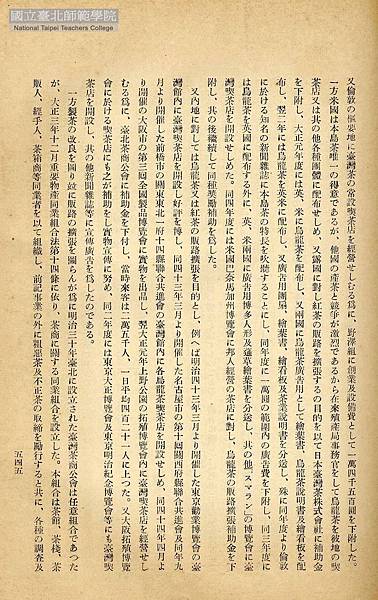 國立臺北師範學院
National Taipei Teachers College
又倫敦の樞要地に臺灣茶の常設喫茶店を經營せしむる爲に、野澤組に創業及設備費として一萬四千五百圓を下附した。
一方米國は本島茶唯一の得意であるが、他國の產茶と競爭が激烈であるから在來殖產局事務官をして烏龍茶を彼地の喫
茶店又は其の他各種團體に配布せしめ、又露國に對し紅茶の販路を擴張するの目的を以て日本臺灣茶株式會社に補助金
を下附し、大正元年度には、英、米に烏龍茶を配布し、又兩國に烏龍茶廣告用として繪葉書、烏龍茶說明書及繪看板を配
布し、翌二年には烏龍茶を英米に配布し、又廣告用團扇、繪葉書、繪看板及茶業說明書を分送し、殊に同年度より倫敦
に於ける知名の新聞雜誌に本島茶の特長を吹聽することにし、同年度に一萬圓の範圍內の廣告費を下附し、同三年度に
は烏龍茶を英國に配布する外に、英、米兩國に廣告用博多人形及蓬草繪葉書を分送し、其の他「スマラン」の博覽會に臺
灣喫茶店を開設せしめた。同四年度には米國巴奈馬加州博覽會に邦人經營の茶店に對し、烏龍茶の販路擴張補助金を下
附し、其の後繼續して同種獎勵補助を爲した。
又內地に對しては烏龍茶又は紅茶の販路擴張を目的とし、例へば明治四十三年三月より開催した東京勸業博覽會の臺
灣館內に臺灣喫茶店を開設し好評を博し、同四十三年三月より開催した名古屋市の第十回關西府縣聯合共進會及同年九
月より開催の前橋市の關東東北一府十四縣聯合共進會の臺灣館內に各烏龍茶喫茶店を開設せしめ、同四十四年四月よ
り開催の大阪市の第三回全國製品博覽會に實物を出品し、翌大正元年上野公園の拓殖博覽會內に臺灣喫茶店を經營せし
むる爲に、臺北茶商公會に補助金を下付し、當時來客は二萬五千人、一日平均四百二十一人に上つた。又大阪拓殖博覽
會に於ける喫茶店にも之が補助をし實物宣傳に努め、同二年度には東京大正博覽會及東京明治紀念博覽會等にも臺灣喫
茶店を開設し、其の他新聞雜誌等に宣傳廣告を爲したのである。
一方製茶の改良を圖り竝に販路の擴張を圖らんが爲に明治三十年臺北に設立された臺灣茶商公會は任意組合であつた
が、大正三年十二月重要物產同業組合法第十四條に依り、茶商に關する同業組合を設立した。本組合は茶館、茶棧、茶
販人、經手人、茶箱商等同業者を以て組織し、前記事業の外に粗惡茶及不正茶の取締を勵行すると共に、各種の調査及
五四五